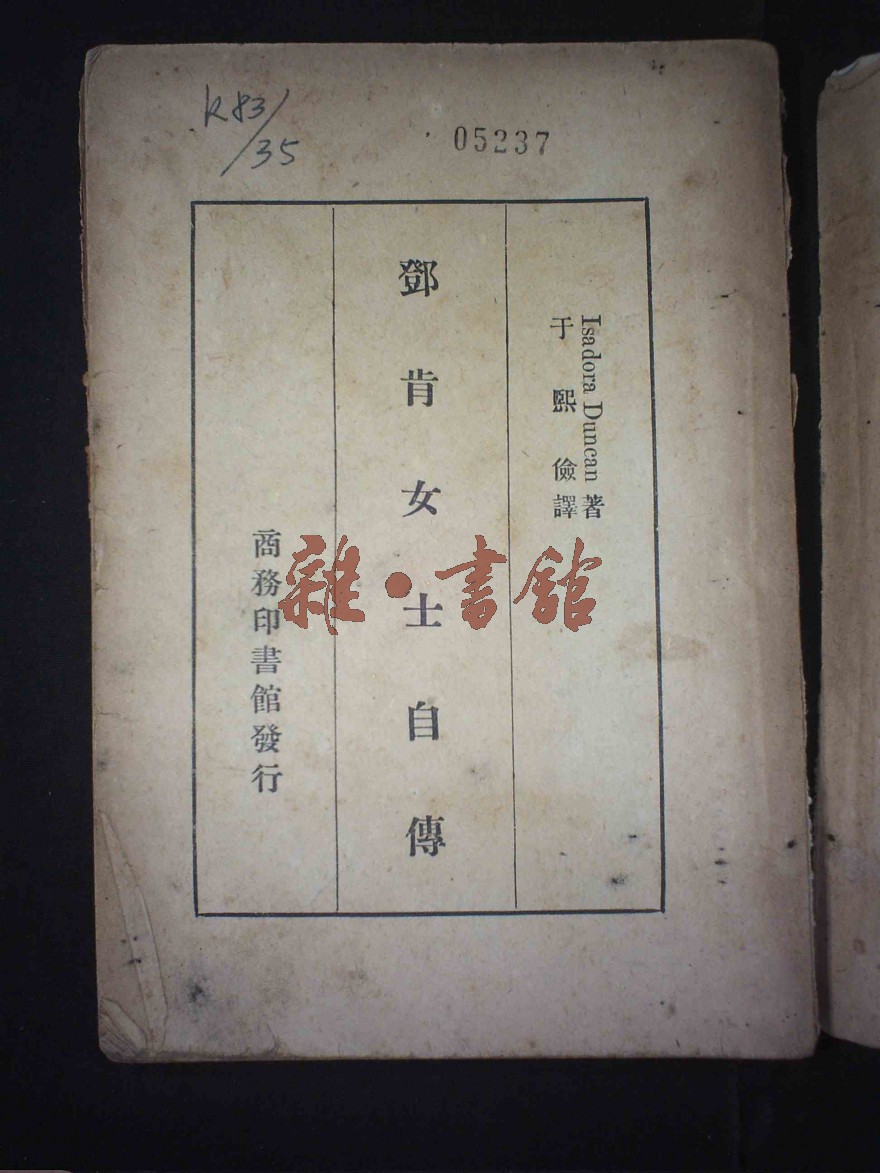 K83/35
05237
Isadora Duncan 著
于熙儉譯
鄧肯女士自傳
商務印書館發行
雜·書館